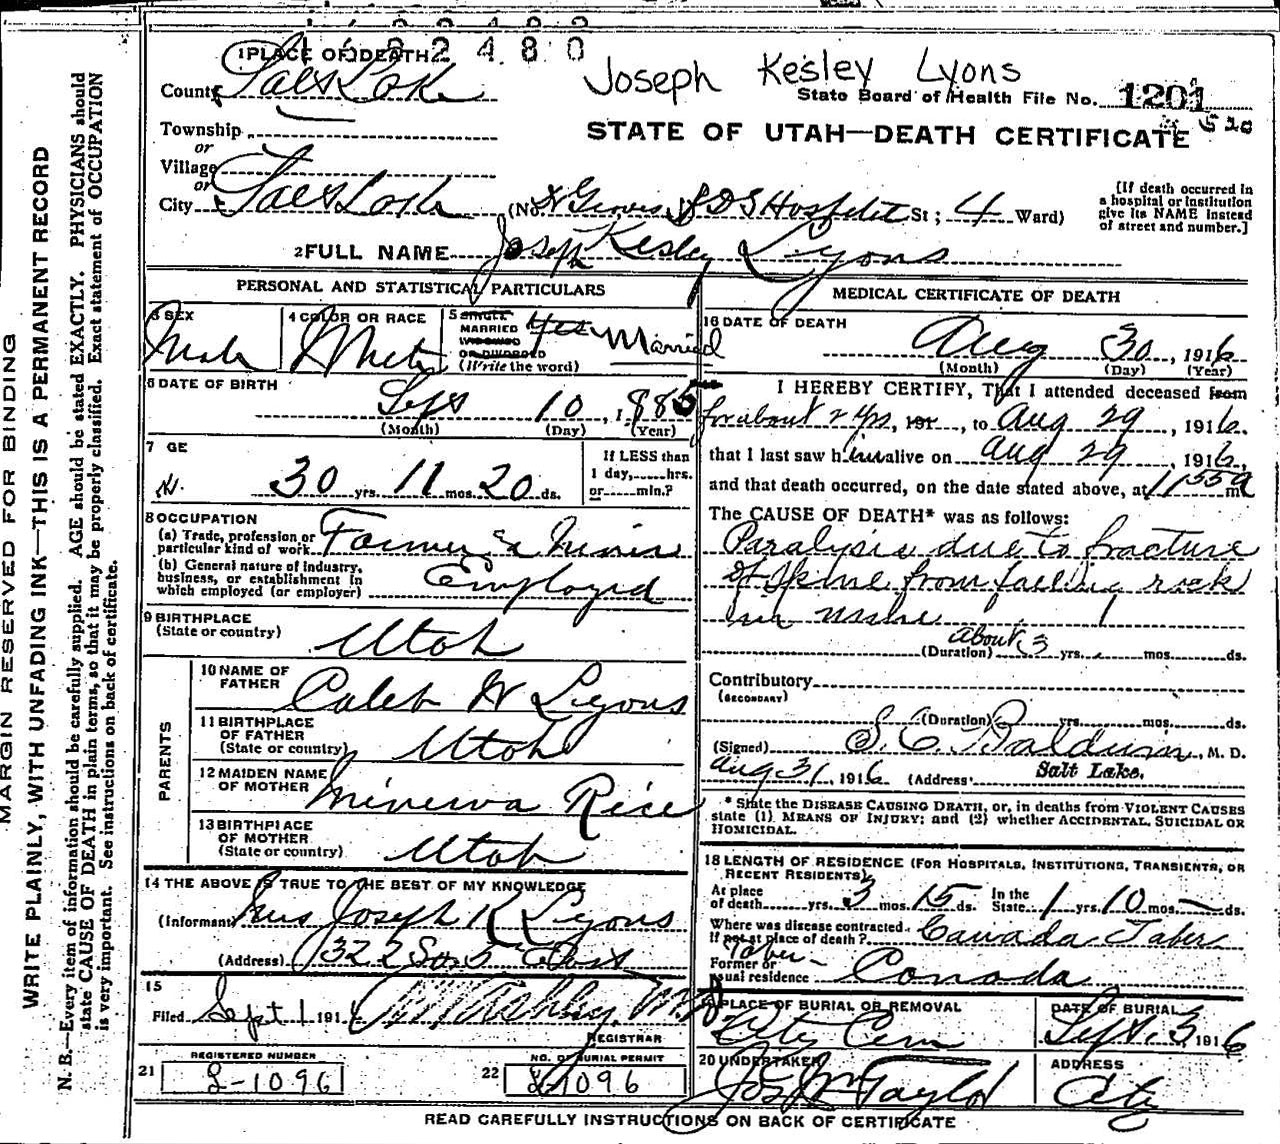 1682480
1 PLACE OF DEATH
Joseph Kesley Lyons
County Salt Lake
State Board of Health File No. 1201
520
Township
or
STATE OF UTAH—DEATH CERTIFICATE
Village
or
City Salt Lake (No. LDS Hospital St; 4 Ward)
[If death occurred in
a hospital or institution
give its NAME instead
of street and number.]
2 FULL NAME Joseph Kesley Lyons
PERSONAL AND STATISTICAL PARTICULARS
3 SEX
Male
4 COLOR OR RACE
White
5 SINGLE
MARRIED
WIDOWED
OR DIVORCED
(Write the word)
Yes Married
6 DATE OF BIRTH
Sept 10, 1885
(Month) (Day) (Year)
7 GE
30 yrs. 11 mos. 20 ds.
If LESS than
1 day, hrs.
or min.?
8 OCCUPATION
(a) Trade, profession or
particular kind of work Farmer & Miner
(b) General nature of industry,
business, or establishment in
which employed (or employer) Employed
9 BIRTHPLACE
(State or country) Utah
PARENTS
10 NAME OF
FATHER Caleb W Lyons
11 BIRTHPLACE
OF FATHER
(State or country) Utah
12 MAIDEN NAME
OF MOTHER Minerva Rice
13 BIRTHPLACE
OF MOTHER
(State or country) Utah
14 THE ABOVE IS TRUE TO THE BEST OF MY KNOWLEDGE
(Informant) Mrs Joseph K Lyons
(Address) 1322 So. 5 East
15
Filed Sept 1 1916
REGISTRAR
REGISTERED NUMBER
21 L-1096
NO. OF BURIAL PERMIT
22 L-1096
MEDICAL CERTIFICATE OF DEATH
16 DATE OF DEATH
Aug 30, 1916
(Month) (Day) (Year)
I HEREBY CERTIFY, That I attended deceased from
for about 2 yrs, 191 , to Aug 29, 1916.
that I last saw him alive on Aug 29, 1916,
and that death occurred, on the date stated above, at 11 55 a m
The CAUSE OF DEATH* was as follows:
Paralysis due to fracture
of spine from falling rock
in mine
(Duration) About 3 yrs. mos. ds.
Contributory
(SECONDARY)
(Duration) yrs. mos. ds.
(Signed) S. C. Baldwin, M. D.
Aug 31, 1916 (Address) Salt Lake.
* State the DISEASE CAUSING DEATH, or, in deaths from VIOLENT CAUSES
state (1) MEANS OF INJURY; and (2) whether ACCIDENTAL, SUICIDAL OR
HOMICIDAL.
18 LENGTH OF RESIDENCE (FOR HOSPITALS, INSTITUTIONS, TRANSIENTS, OR
RECENT RESIDENTS)
At place
of death yrs. 3 mos. 15 ds. In the
State 1 yrs. 10 mos. — ds.
Where was disease contracted
If not at place of death? Canada Taber
Former or
usual residence Taber - Canada
19 PLACE OF BURIAL OR REMOVAL
City Cem
DATE OF BURIAL
Sept. 3 1916
20 UNDERTAKER
Jos Wm Taylor
ADDRESS
City
READ CAREFULLY INSTRUCTIONS ON BACK OF CERTIFICATE
MARGIN RESERVED FOR BINDING
WRITE PLAINLY, WITH UNFADING INK—THIS IS A PERMANENT RECORD
N. B.—Every item of information should be carefully supplied. AGE should be stated EXACTLY. PHYSICIANS should
state CAUSE OF DEATH in plain terms, so that it may be properly classified. Exact statement of OCCUPATION
is very important. See instructions on back of certificate.